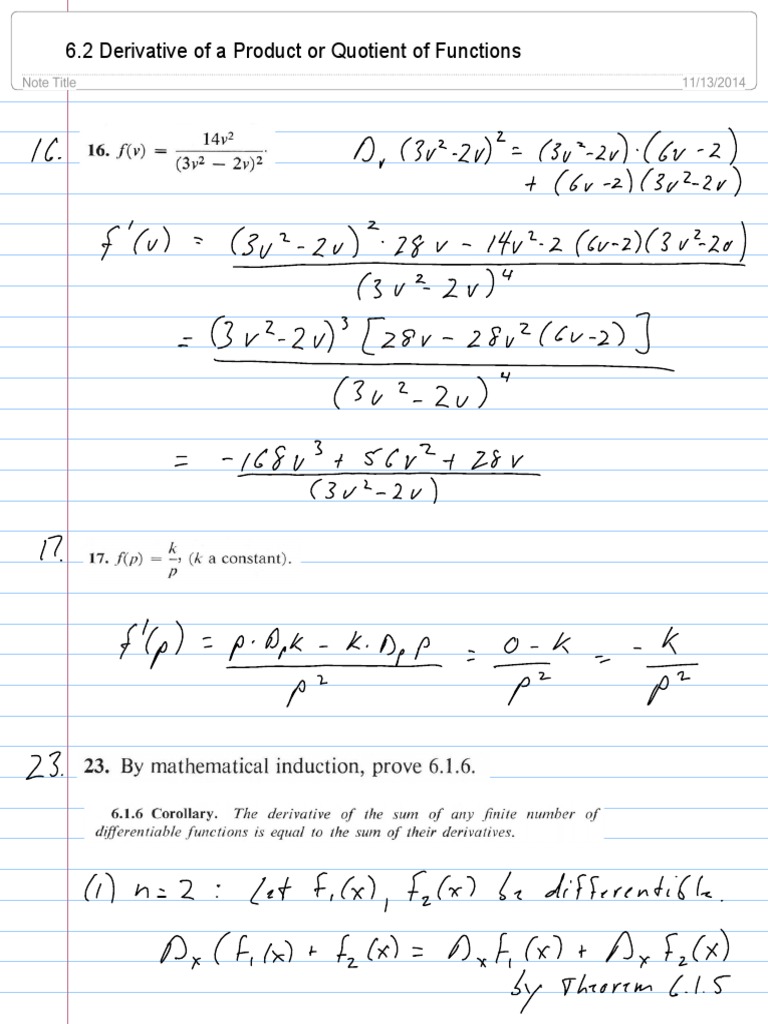 6.2 Derivative of a Product or Quotient of Functions
Note Title 11/13/2014
16. 16. f(v) = 14v² / (3v² − 2v)². D_v (3v²-2v)² = (3v²-2v)·(6v-2)
+ (6v-2)(3v²-2v)
f'(v) = (3v²-2v)²·28v - 14v²·2 (6v-2)(3v²-2v) / (3v²-2v)⁴
= (3v²-2v)³ [28v - 28v²(6v-2)] / (3v²-2v)⁴
= -168v³ + 56v² + 28v / (3v²-2v)
17. 17. f(p) = k/p, (k a constant).
f'(p) = p·D_p k - k·D_p p / p² = 0-k / p² = - k / p²
23. 23. By mathematical induction, prove 6.1.6.
6.1.6 Corollary. The derivative of the sum of any finite number of
differentiable functions is equal to the sum of their derivatives.
(1) n=2 : Let f₁(x), f₂(x) be differentible.
D_x (f₁(x) + f₂(x) = D_x f₁(x) + D_x f₂(x)
by Theorem 6.1.5